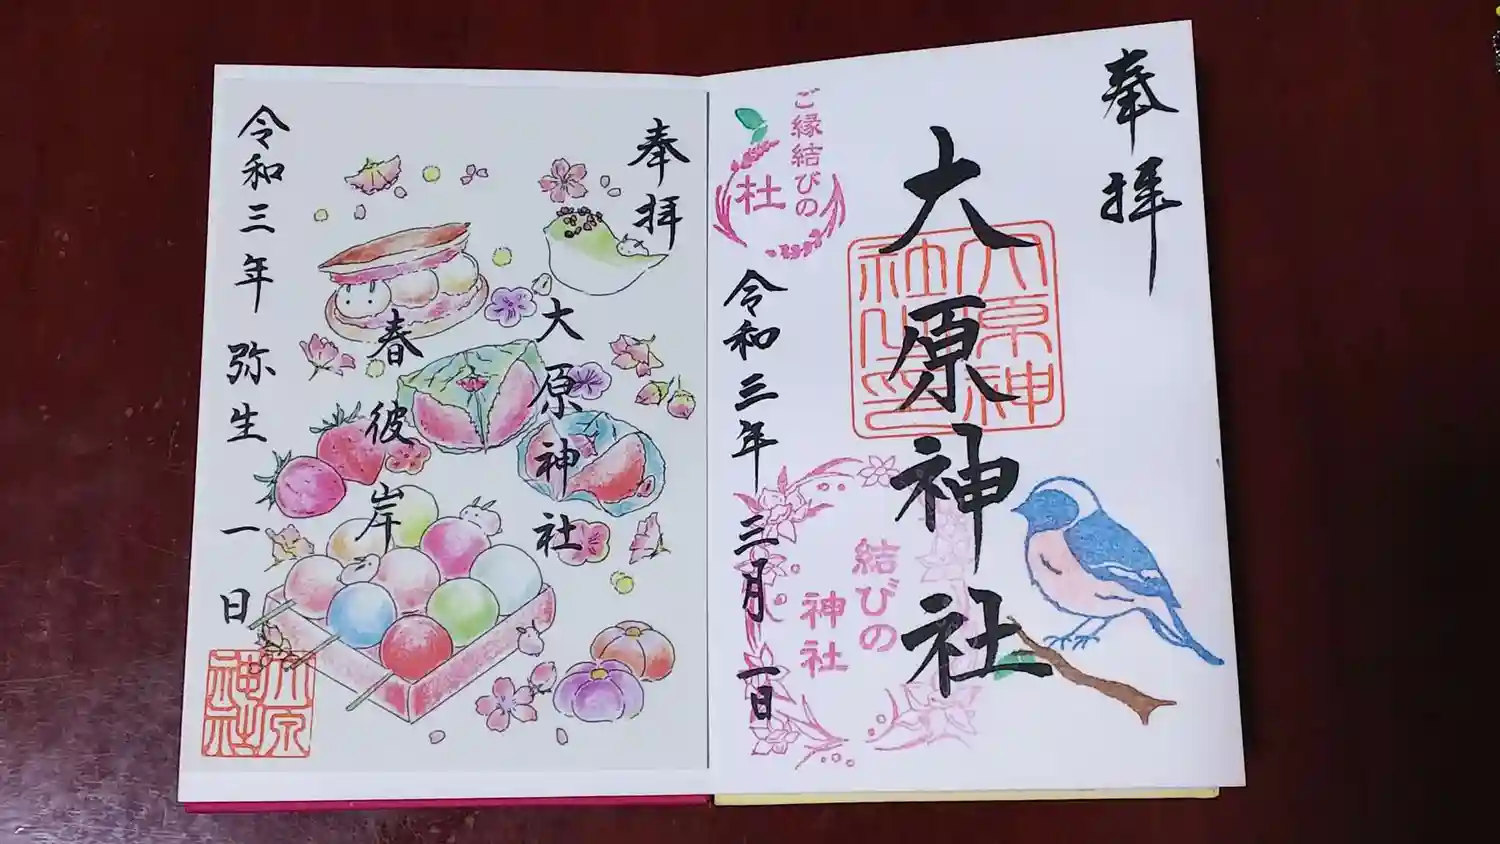 奉拝
大原神社
大原神社之印
ご縁結びの
杜
令和三年三月一日
結びの
神社
奉拝
大原神社
春彼岸
令和三年弥生一日
大原神社